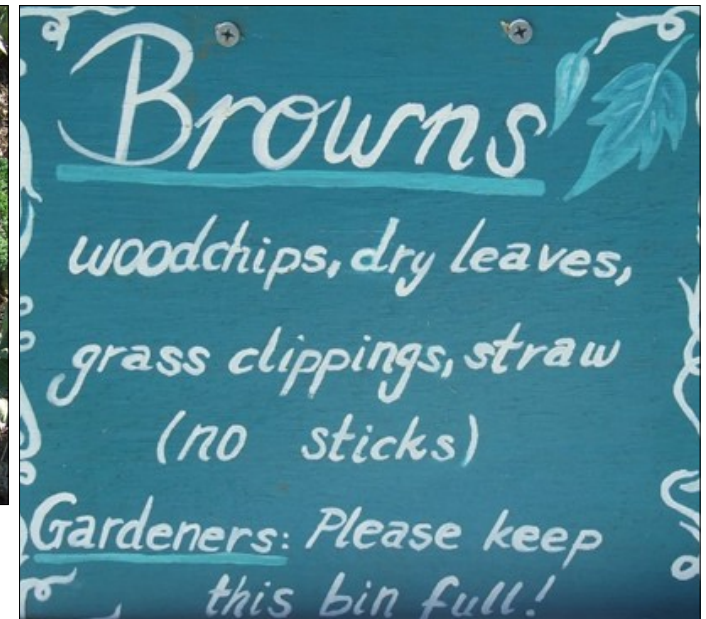 Browns
woodchips, dry leaves,
grass clippings, straw
(no sticks)
Gardeners: Please keep
this bin full!